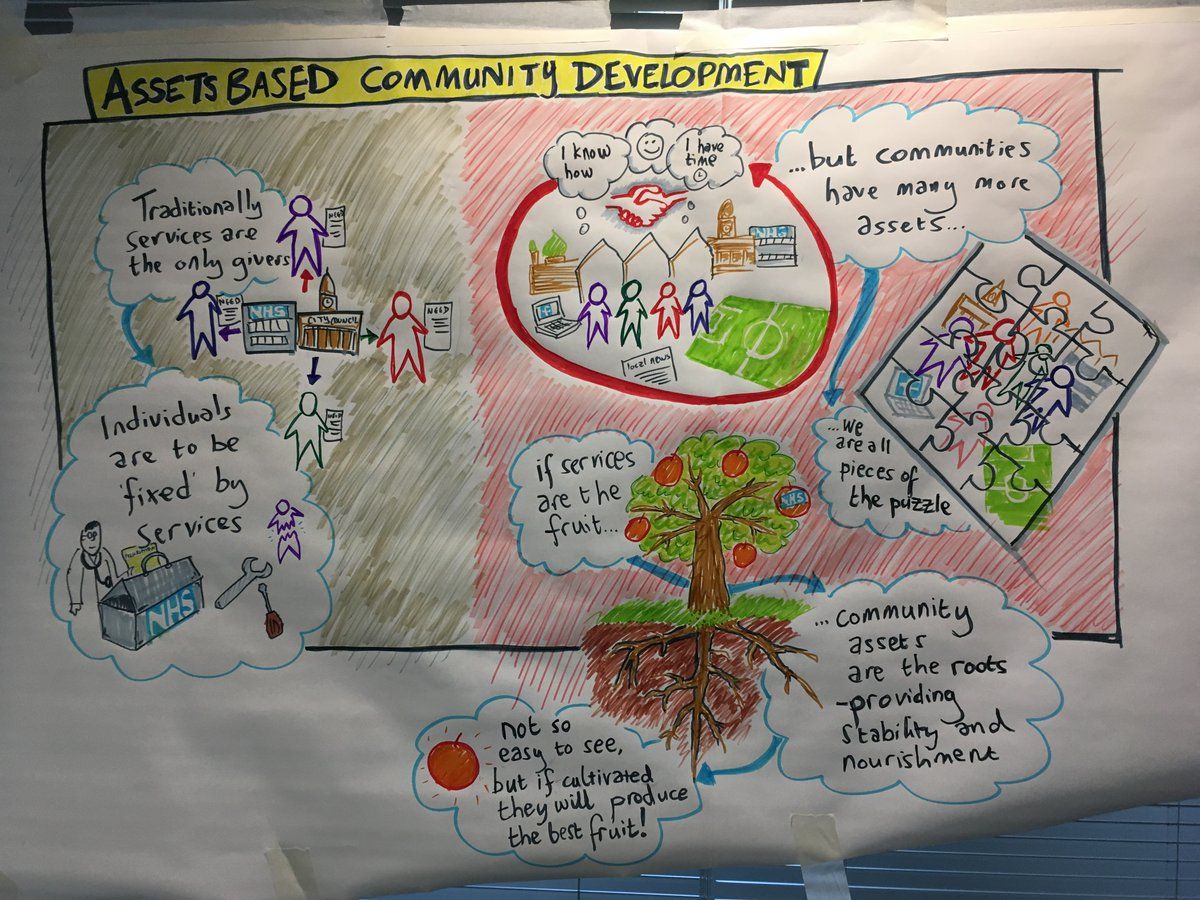 ASSETS BASED COMMUNITY DEVELOPMENT
Traditionally
services are
the only givers
NEED
NEED
NHS
CITY COUNCIL
NEED
NEED
Individuals
are to be
'fixed' by
services
NHS
I know
how
I have
time
NHS
NHS
local news
...but communities
have many more
assets...
...we
are all
pieces of
the puzzle
if services
are the
fruit...
NHS
...community
assets
are the roots
-providing
stability and
nourishment
not so
easy to see,
but if cultivated
they will produce
the best fruit!